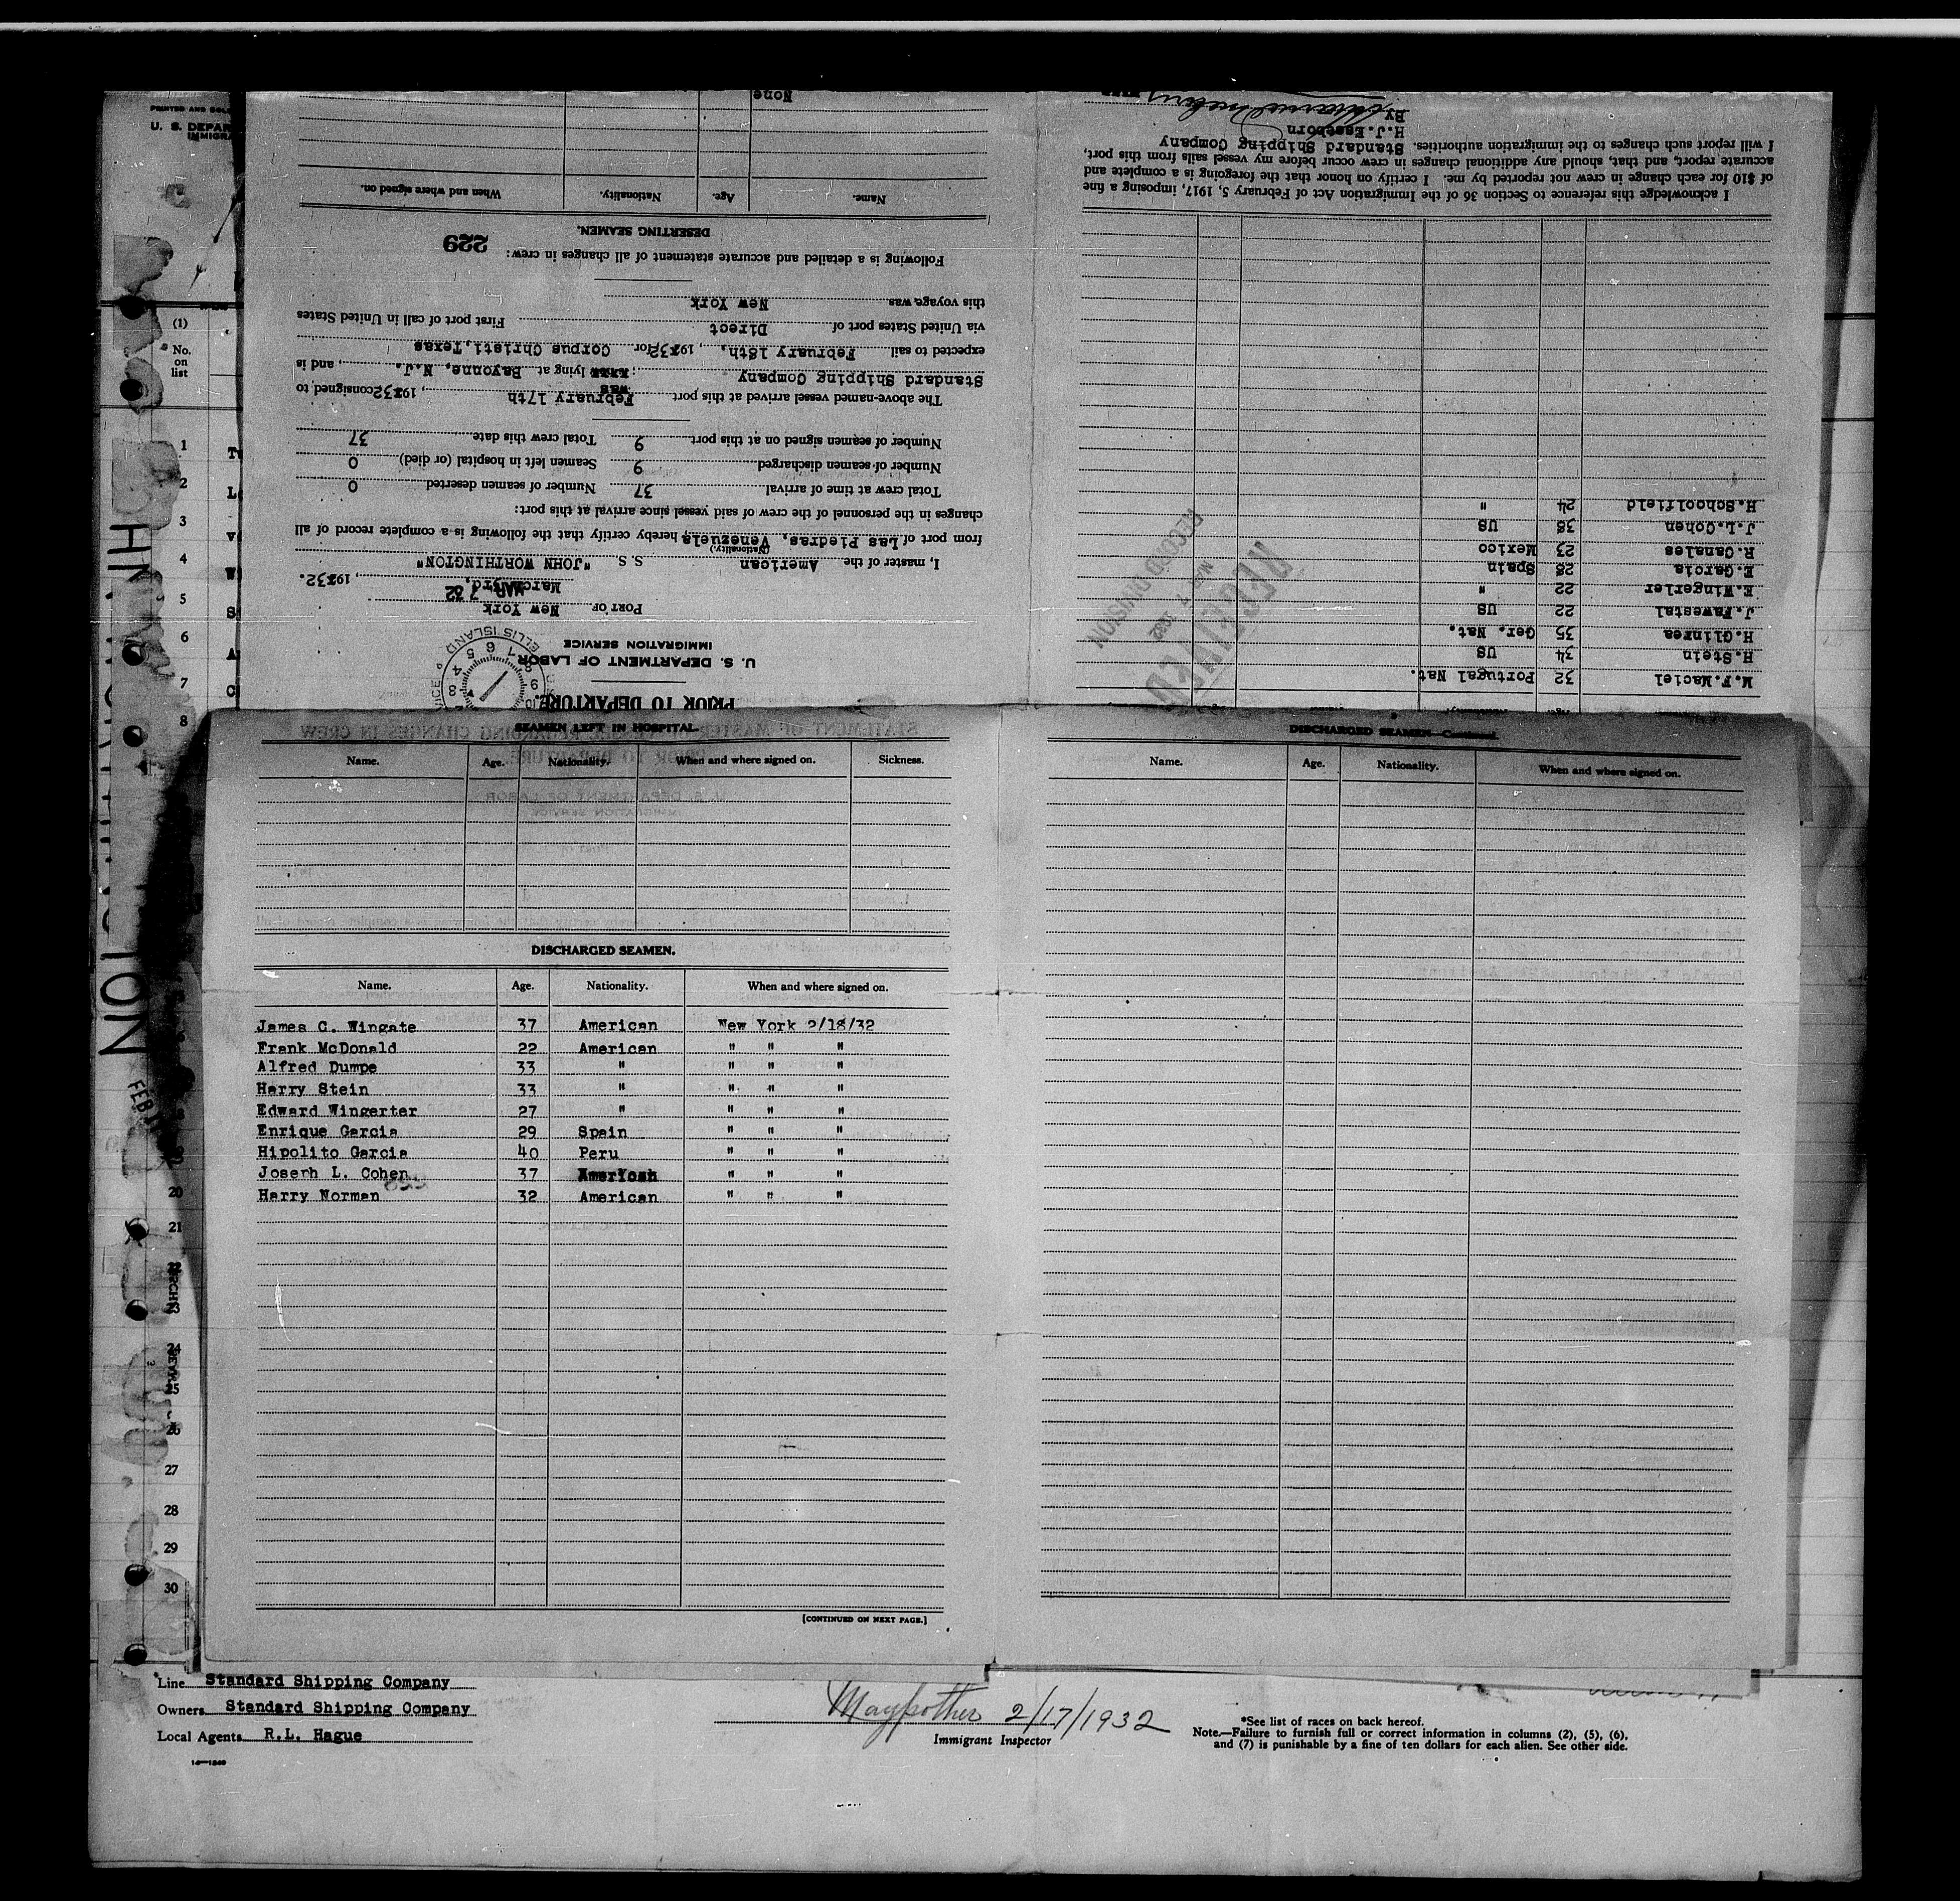 PRINTED AND SOLD
U. S. DEPAR
IMMIGRA
(1)
No.
on
list
1
2
3
4
5
6
7
8
20
21
23
24
25
26
27
28
29
30
PRIOR TO DEPARTURE.
U. S. DEPARTMENT OF LABOR
IMMIGRATION SERVICE
ELLIS ISLAND
PORT OF New York
March 3rd, 1932.
MAR 7 32
I, master of the American S. S. "JOHN WORTHINGTON"
(Nationality.)
from port of Las Piedras, Venezuela hereby certify that the following is a complete record of all
changes in the personnel of the crew of said vessel since arrival at this port:
Total crew at time of arrival 37 Number of seamen deserted 0
Number of seamen discharged 9 Seamen left in hospital (or died) 0
Number of seamen signed on at this port 9 Total crew this date 37
The above-named vessel arrived at this port February 17th, 1932 consigned to
Standard Shipping Company; was lying at Bayonne, N.J., and is
expected to sail February 18th, 1932 for Corpus Christi, Texas
via United States port of Direct First port of call in United States
this voyage was New York
Following is a detailed and accurate statement of all changes in crew:
229
DESERTING SEAMEN.
Name. Age. Nationality. When and where signed on.
None
M.F.Maciel 32 Portugal Nat.
H.Stein 34 US
H.Glinrea 35 Ger. Nat.
J.Pawestal 22 US
E.Wingerler 22 "
E.Garcia 28 Spain
R.Canales 23 Mexico
J.L.Cohen 38 US
H.Schoolfield 24 "
RECEIVED
MAR 7 1932
RECORD DIVISION
I acknowledge this reference to Section 36 of the Immigration Act of February 5, 1917, imposing a fine
of $10 for each change in crew not reported by me. I certify on honor that the foregoing is a complete and
accurate report, and that, should any additional changes in crew occur before my vessel sails from this port,
I will report such changes to the immigration authorities. Standard Shipping Company
H.J.Esseborn
By
SEAMEN LEFT IN HOSPITAL.
Name. Age. Nationality. When and where signed on. Sickness.
DISCHARGED SEAMEN.
Name. Age. Nationality. When and where signed on.
James C. Wingate 37 American New York 2/18/32
Frank McDonald 22 American " " "
Alfred Dumpe 33 " " " "
Harry Stein 33 " " " "
Edward Wingerter 27 " " " "
Enrique Garcia 29 Spain " " "
Hipolito Garcia 40 Peru " " "
Joseph L. Cohen 37 American " " "
Harry Norman 32 American " " "
[CONTINUED ON NEXT PAGE.]
DISCHARGED SEAMEN—Continued.
Name. Age. Nationality. When and where signed on.
Line Standard Shipping Company
Owners Standard Shipping Company
Local Agents R.L. Hague
Maypother 2/17/1932
Immigrant Inspector
*See list of races on back hereof.
Note.—Failure to furnish full or correct information in columns (2), (5), (6),
and (7) is punishable by a fine of ten dollars for each alien. See other side.